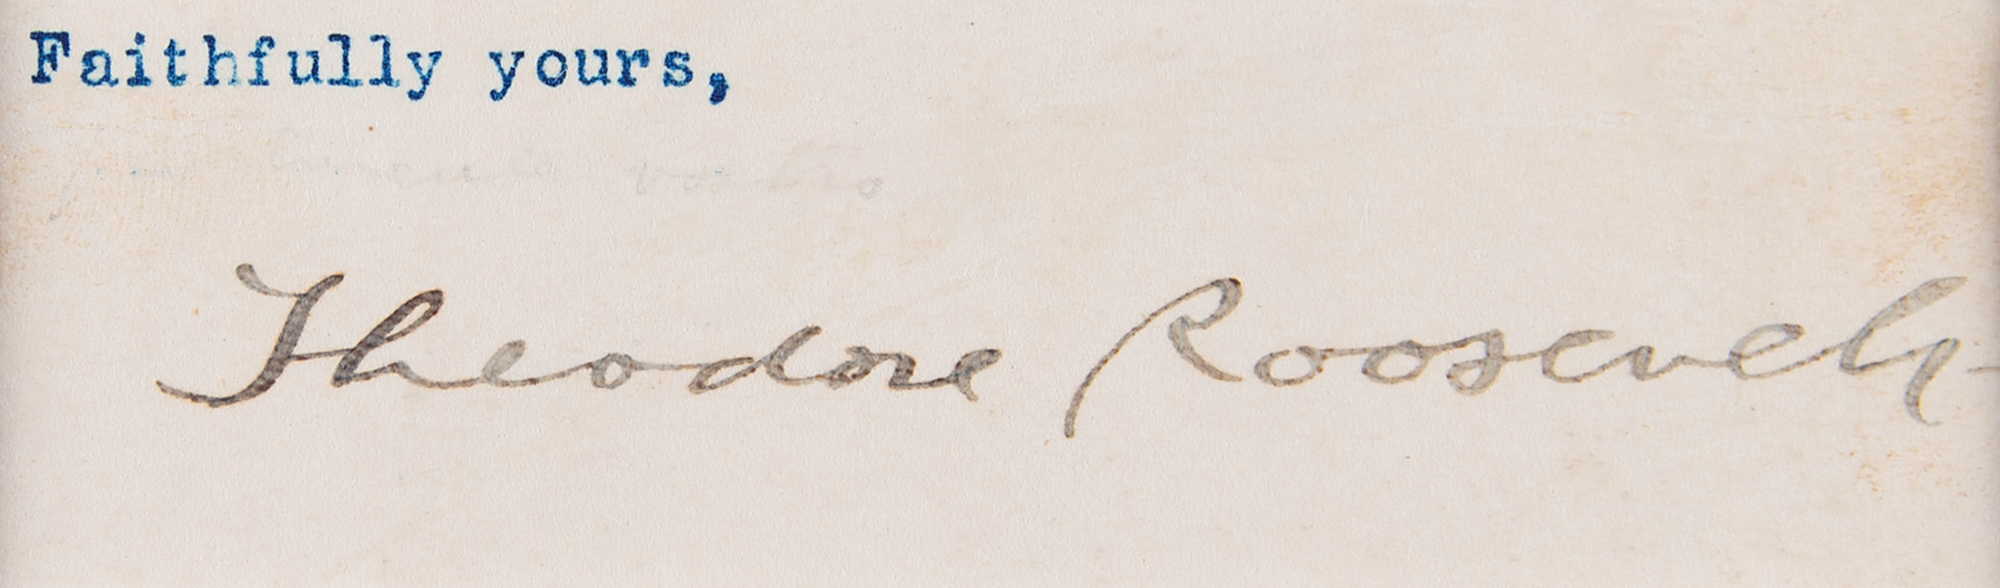 Faithfully yours,
Theodore Roosevelt